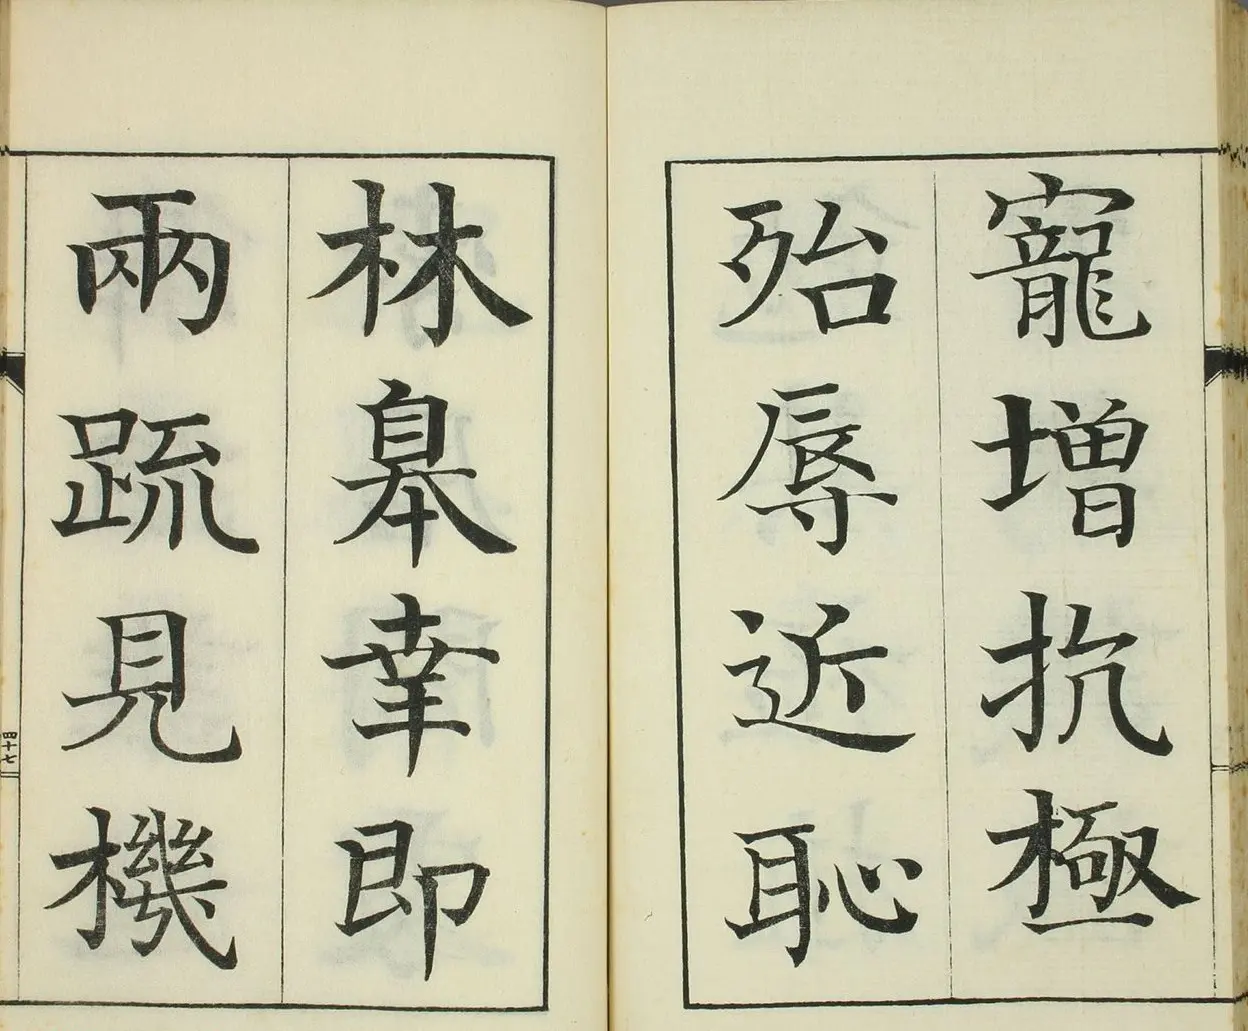 寵增抗極
殆辱近恥
林皋幸即
兩疏見機
四十七